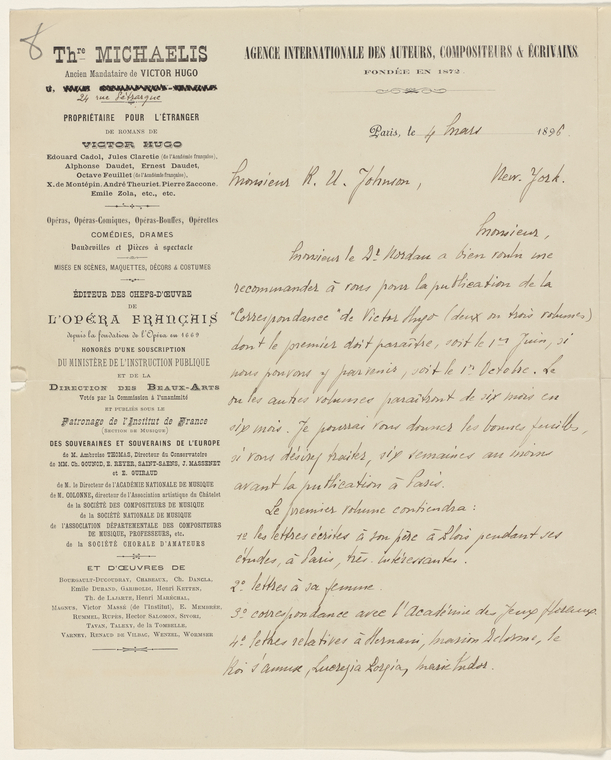 8
Th^re MICHAELIS
Ancien Mandataire de VICTOR HUGO
24 rue Pétrarque
PROPRIÉTAIRE POUR L'ÉTRANGER
DE ROMANS DE
VICTOR HUGO
Edouard Cadol, Jules Claretie (de l'Académie française),
Alphonse Daudet, Ernest Daudet,
Octave Feuillet (de l'Académie française),
X. de Montépin, André Theuriet, Pierre Zaccone,
Emile Zola, etc., etc.
Opéras, Opéras-Comiques, Opéras-Bouffes, Opérettes
COMÉDIES, DRAMES
Vaudevilles et Pièces à spectacle
MISES EN SCÈNES, MAQUETTES, DÉCORS & COSTUMES
ÉDITEUR DES CHEFS-D'ŒUVRE
DE
L'OPÉRA FRANÇAIS
depuis la fondation de l'Opéra en 1669
HONORÉS D'UNE SOUSCRIPTION
DU MINISTÈRE DE L'INSTRUCTION PUBLIQUE
ET DE LA
DIRECTION DES BEAUX-ARTS
Votée par la Commission à l'unanimité
ET PUBLIÉS SOUS LE
Patronage de l'Institut de France
(SECTION DE MUSIQUE)
DES SOUVERAINES ET SOUVERAINS DE L'EUROPE
de M. Ambroise THOMAS, Directeur du Conservatoire
de MM. Ch. GOUNOD, E. REYER, SAINT-SAENS, J. MASSENET
et E. GUIRAUD
de M. le Directeur de l'ACADÉMIE NATIONALE DE MUSIQUE
de M. COLONNE, directeur de l'Association artistique du Châtelet
de la SOCIÉTÉ DES COMPOSITEURS DE MUSIQUE
de la SOCIÉTÉ NATIONALE DE MUSIQUE
de l'ASSOCIATION DÉPARTEMENTALE DES COMPOSITEURS
DE MUSIQUE, PROFESSEURS, etc.
de la SOCIÉTÉ CHORALE D'AMATEURS
ET D'ŒUVRES DE
BOURGAULT-DUCOUDRAY, CHABEAUX, Ch. DANCLA,
Emile DURAND, GARIBOLDI, Henri KETTEN,
Th. de LAJARTE, Henri MARÉCHAL,
MAGNUS, Victor MASSÉ (de l'Institut), E. MEMBRÉE,
RUMMEL, RUPÈS, Hector SALOMON, SIVORI,
TAVAN, TALEXY, de la TOMBELLE,
VARNEY, RENAUD DE VILBAC, WENZEL, WORMSER
AGENCE INTERNATIONALE DES AUTEURS, COMPOSITEURS & ÉCRIVAINS.
FONDÉE EN 1872.
Paris, le 4 Mars 1896
Monsieur R. U. Johnson, New-York.
Monsieur,
Monsieur le Dr Nordau a bien voulu me
recommander à vous pour la publication de la
"Correspondance" de Victor Hugo (deux ou trois volumes)
dont le premier doit paraître, soit le 1er Juin, si
nous pouvons y parvenir, soit le 1er Octobre. Le
ou les autres volumes paraîtront de six mois en
six mois. Je pourrai vous donner les bonnes feuilles,
si vous désirez traiter, six semaines au moins
avant la publication à Paris.
Le premier volume contiendra :
1e les lettres écrites à son père à Blois pendant ses
études, à Paris, très intéressantes.
2o lettres à sa femme.
3o correspondance avec l'Académie des Jeux floraux.
4o lettres relatives à Hernani, Marion Delorme, le
Roi s'amuse, Lucrezia Borgia, Marie Tudor.